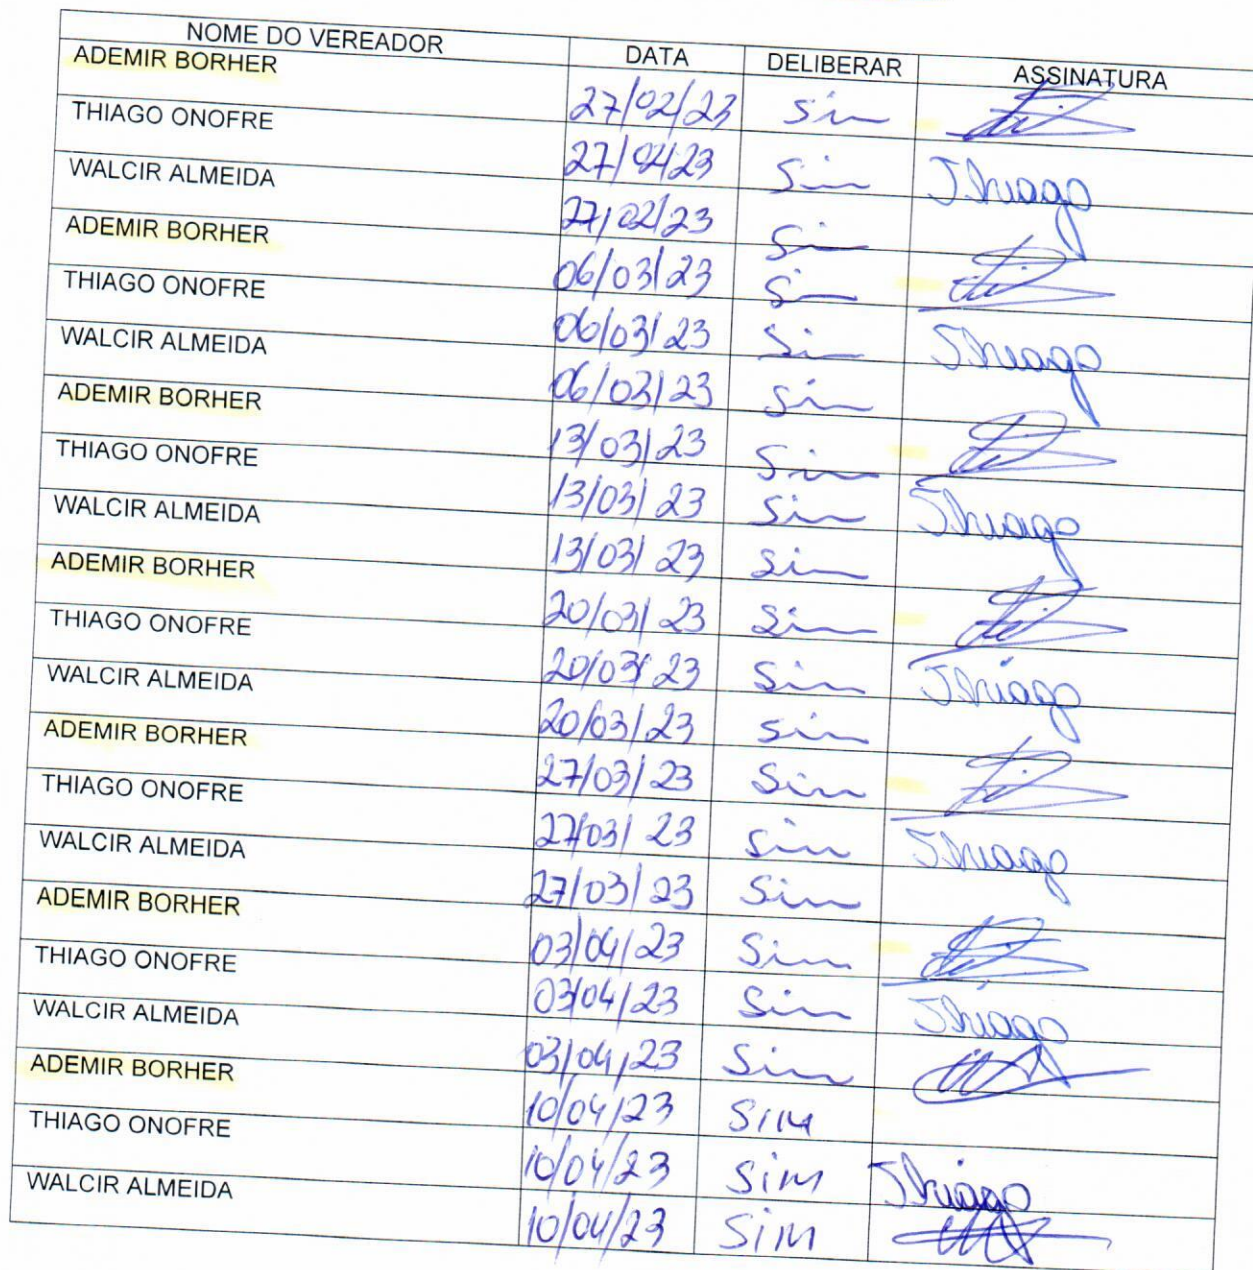 NOME DO VEREADOR DATA DELIBERAR ASSINATURA
ADEMIR BORHER 27/02/23 Sim
THIAGO ONOFRE 27/02/23 Sim Thiago
WALCIR ALMEIDA 27/02/23 Sim
ADEMIR BORHER 06/03/23 Sim
THIAGO ONOFRE 06/03/23 Sim Thiago
WALCIR ALMEIDA 06/03/23 Sim
ADEMIR BORHER 13/03/23 Sim
THIAGO ONOFRE 13/03/23 Sim Thiago
WALCIR ALMEIDA 13/03/23 Sim
ADEMIR BORHER 20/03/23 Sim
THIAGO ONOFRE 20/03/23 Sim Thiago
WALCIR ALMEIDA 20/03/23 Sim
ADEMIR BORHER 27/03/23 Sim
THIAGO ONOFRE 27/03/23 Sim Thiago
WALCIR ALMEIDA 27/03/23 Sim
ADEMIR BORHER 03/04/23 Sim
THIAGO ONOFRE 03/04/23 Sim Thiago
WALCIR ALMEIDA 03/04/23 Sim
ADEMIR BORHER 10/04/23 SIM
THIAGO ONOFRE 10/04/23 SIM Thiago
WALCIR ALMEIDA 10/04/23 SIM